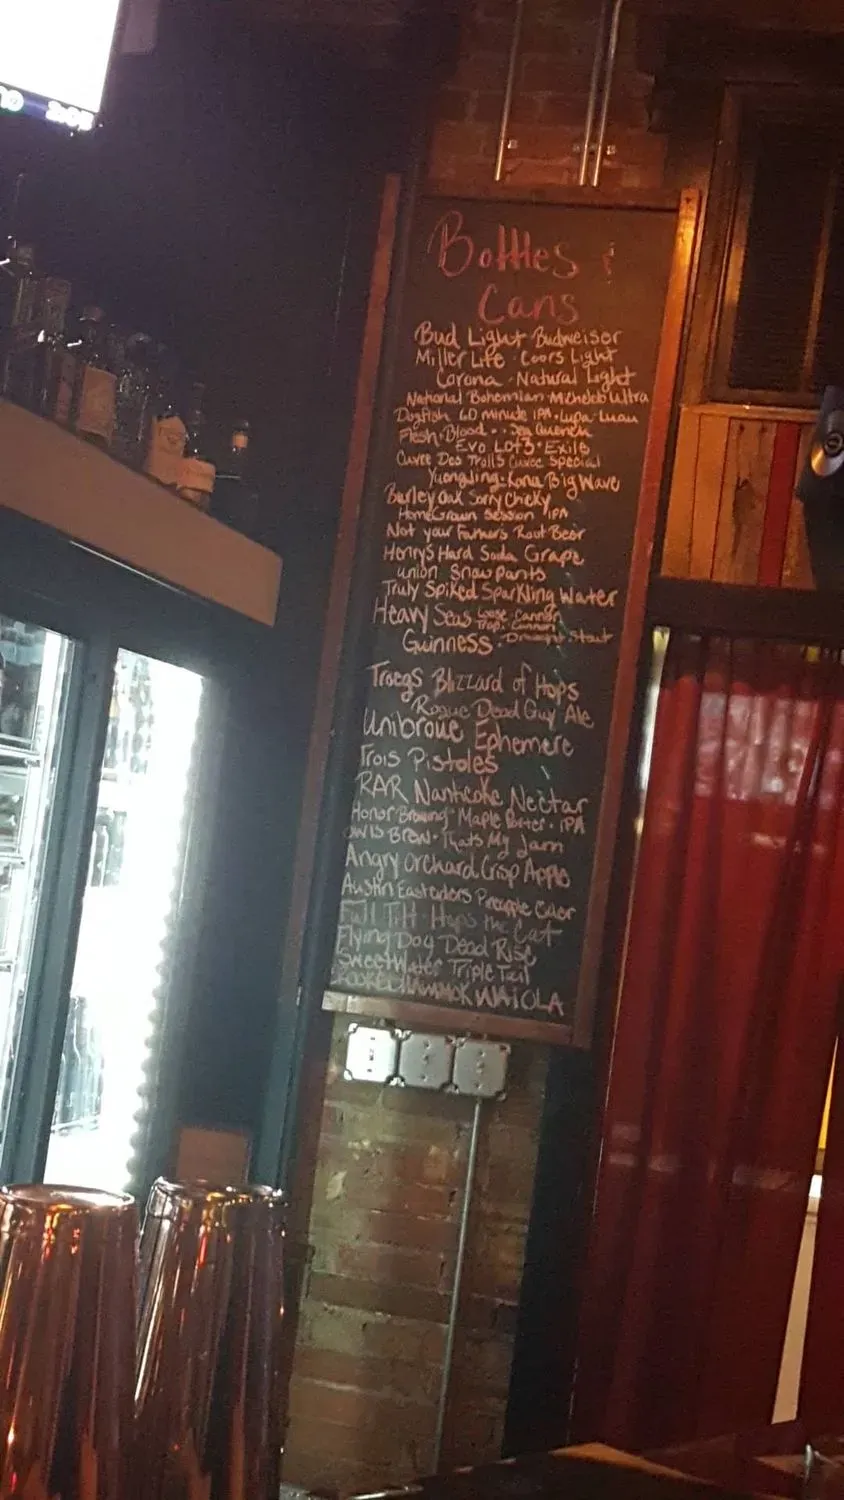 Bottles &
Cans
Bud Light Budweiser
Miller Lite · Coors Light
Corona · Natural Light
National Bohemian · Michelob Ultra
Dogfish 60 minute IPA · Lupa-Luau
Flesh · Blood · Sea Quench
Evo Lot 3 · Exile
Cuvee Des Trolls Cuvee Special
Yuengling · Kona Big Wave
Burley Oak Sorry Chicky
HomeGrown Session IPA
Not your Fathers Root Beer
Henry's Hard Soda Grape
union Snow Pants
Truly Spiked Sparkling Water
Heavy Seas Loose Cannon
Trop. Cannon
Guinness · Draught · Stout
Troegs Blizzard of Hops
Rogue Dead Guy Ale
Unibroue Ephemere
Trois Pistoles
RAR Nanticoke Nectar
Honor Brewing Maple Porter · IPA
DWIS Brew · Thats My Jam
Angry Orchard Crisp Apple
Austin Eastciders Pineapple Cider
Full Tilt · Hops the Cat
Flying Dog Dead Rise
SweetWater Triple Tail
HAMMOCK WAIOLA